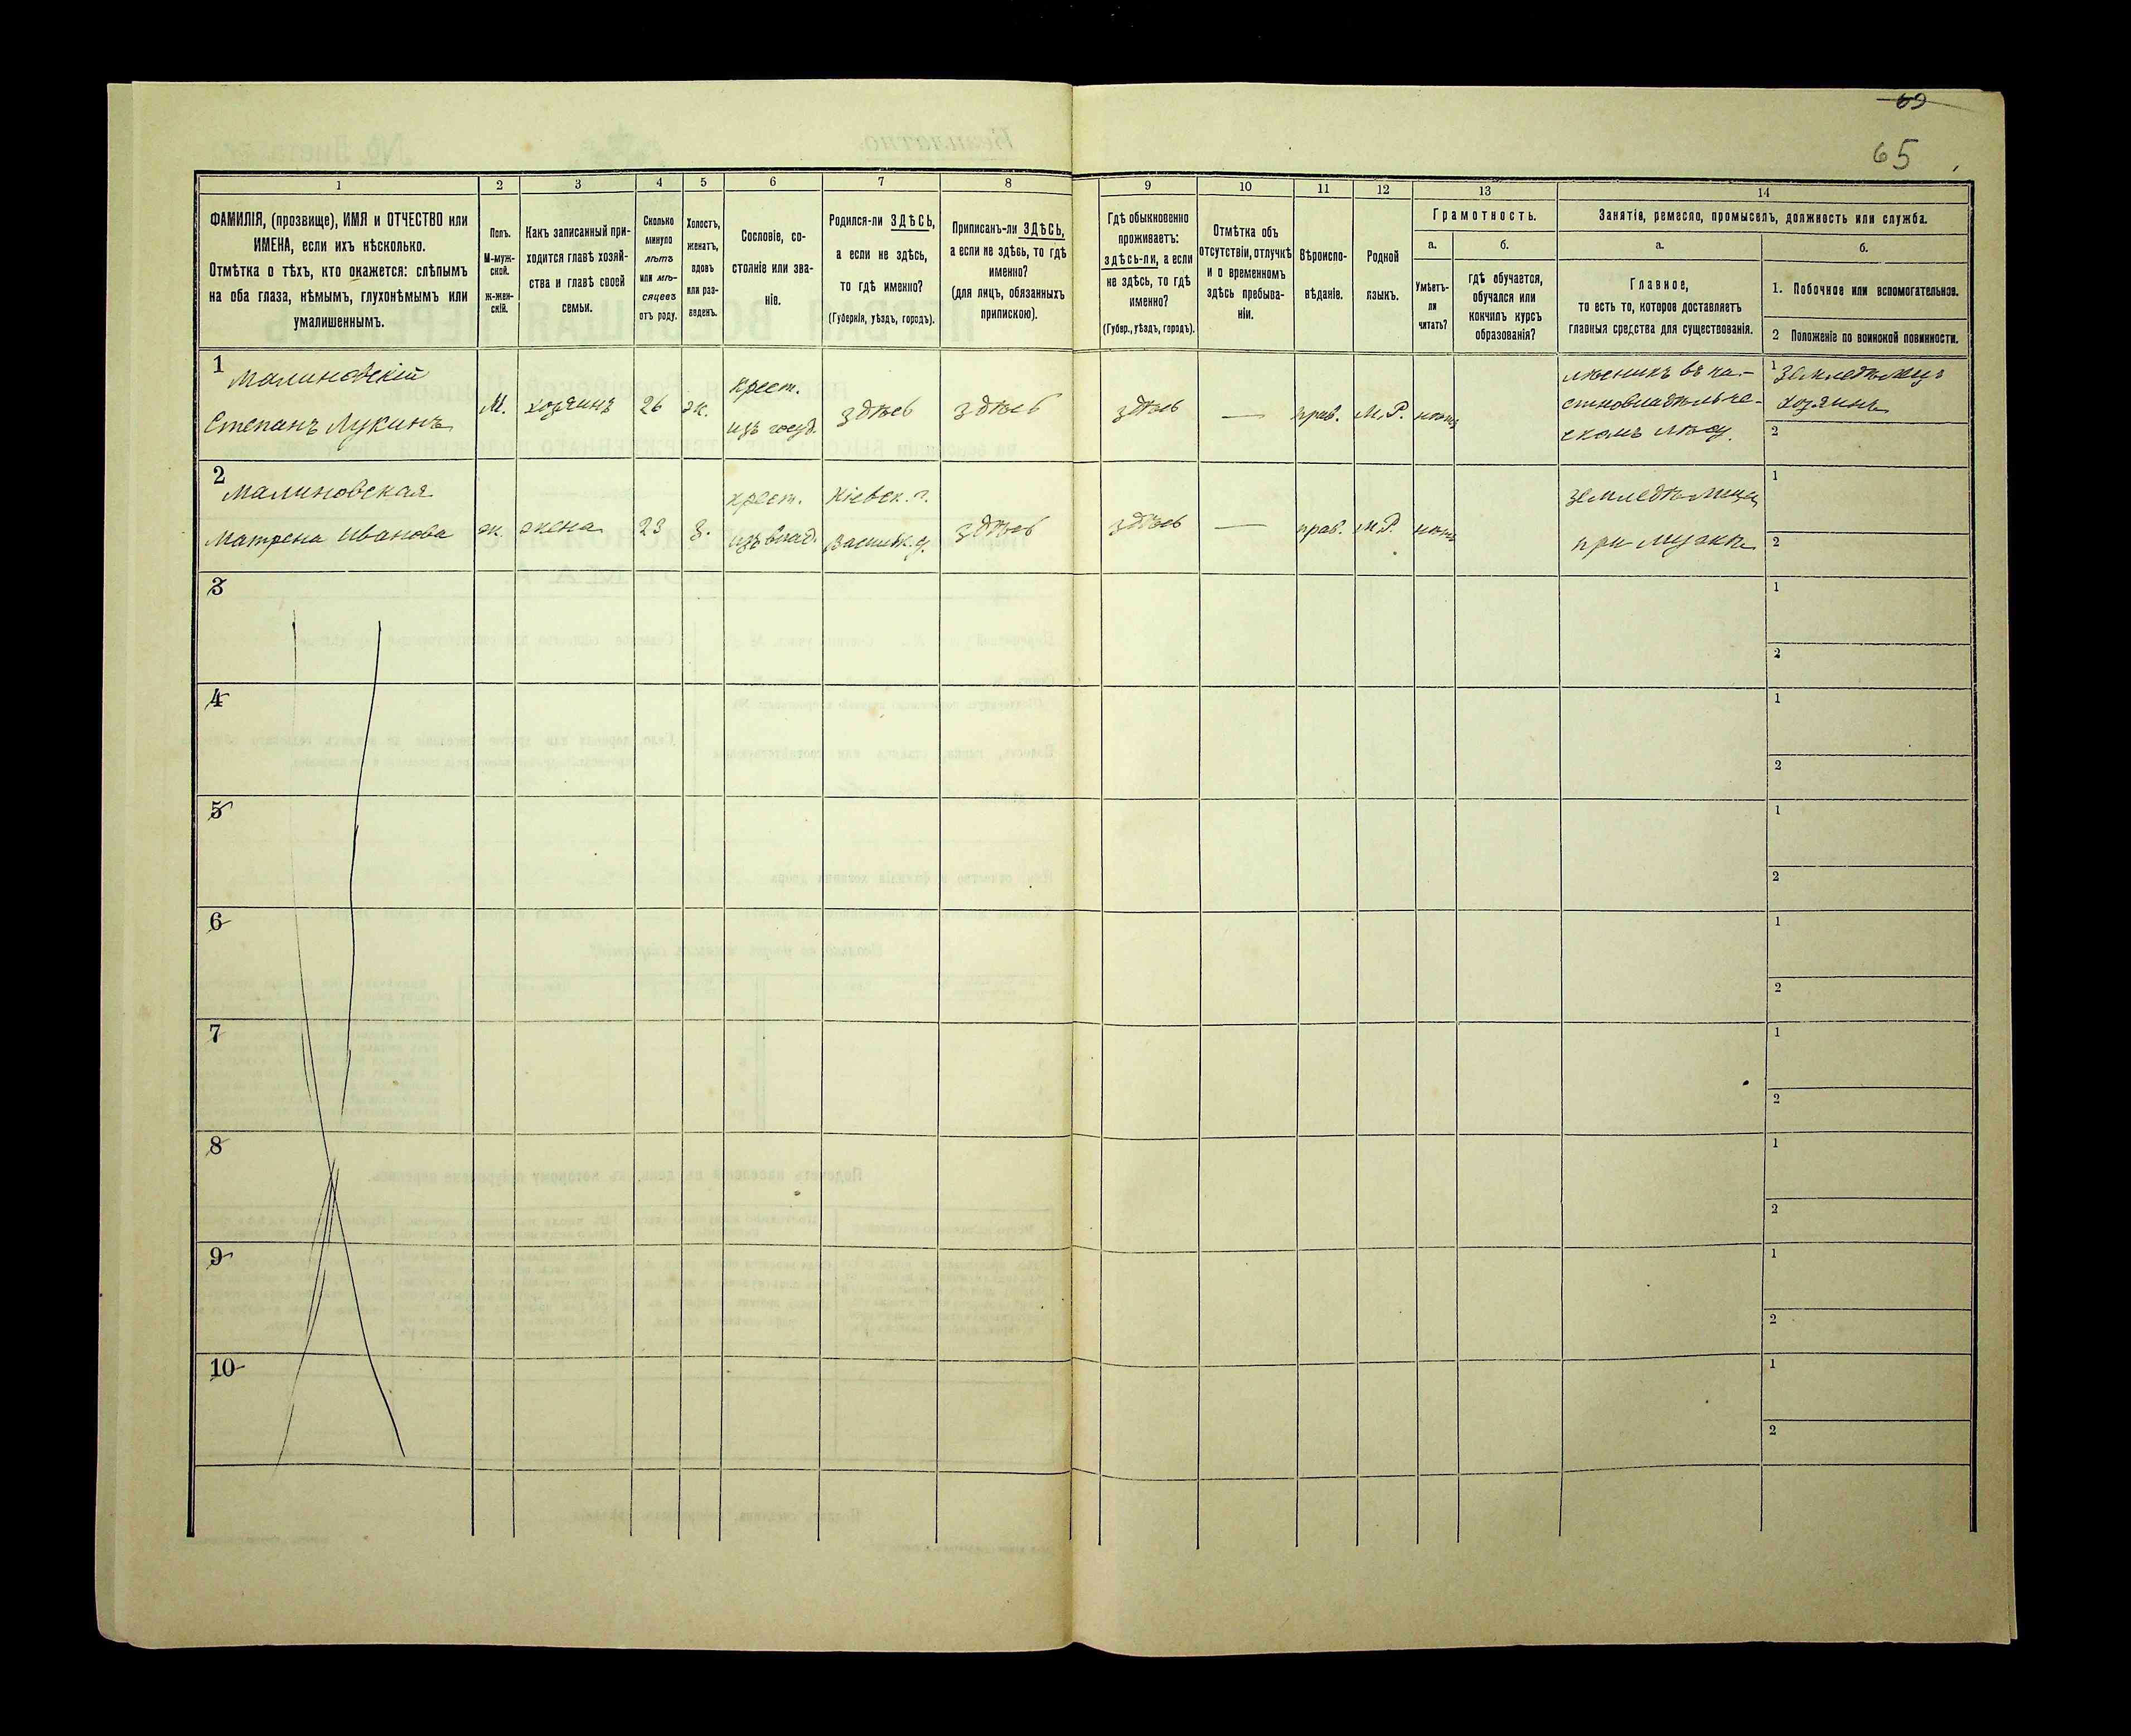 69
65
1 2 3 4 5 6 7 8 9 10 11 12 13 14
ФАМИЛІЯ, (прозвище), ИМЯ и ОТЧЕСТВО или
ИМЕНА, если ихъ нѣсколько.
Отмѣтка о тѣхъ, кто окажется: слѣпымъ
на оба глаза, нѣмымъ, глухонѣмымъ или
умалишеннымъ.
Полъ.
М-муж-
ской.
ж-жен-
скій.
Какъ записанный при-
ходится главѣ хозяй-
ства и главѣ своей
семьи.
Сколько
минуло
лѣтъ
или мѣ-
сяцевъ
отъ роду.
Холостъ,
женатъ,
вдовъ
или раз-
веденъ.
Сословіе, со-
стояніе или зва-
ніе.
Родился-ли ЗДѢСЬ,
а если не здѣсь,
то гдѣ именно?
(Губернія, уѣздъ, городъ).
Приписанъ-ли ЗДѢСЬ,
а если не здѣсь, то гдѣ
именно?
(для лицъ, обязанныхъ
припискою).
Гдѣ обыкновенно
проживаетъ:
здѣсь-ли, а если
не здѣсь, то гдѣ
именно?
(Губер., уѣздъ, городъ).
Отмѣтка объ
отсутствіи, отлучкѣ
и о временномъ
здѣсь пребыва-
ніи.
Вѣроиспо-
вѣданіе.
Родной
языкъ.
Грамотность.
а.
Умѣетъ-
ли
читать?
б.
гдѣ обучается,
обучался или
кончилъ курсъ
образованія?
Занятія, ремесло, промыселъ, должность или служба.
а.
Главное,
то есть то, которое доставляетъ
главныя средства для существованія.
б.
1. Побочное или вспомогательное.
2 Положеніе по воинской повинности.
1
Малиновскій
Степанъ Лукинъ
М.
хозяинъ
26
ж.
крест.
изъ госуд.
здѣсь
здѣсь
здѣсь
—
прав.
М.Р.
нѣтъ
лѣсникъ въ ча-
стновладѣльче-
скомъ лѣсу.
1 Земледѣлецъ
хозяинъ
2
2
Малиновская
Матрена Иванова
ж.
жена
23
з.
крест.
изъ влад.
Кіевск. г.
Васильк. у.
здѣсь
здѣсь
—
прав.
М.Р.
нѣтъ
земледѣлица
при мужѣ
1
2
3
1
2
4
1
2
5
1
2
6
1
2
7
1
2
8
1
2
9
1
2
10
1
2